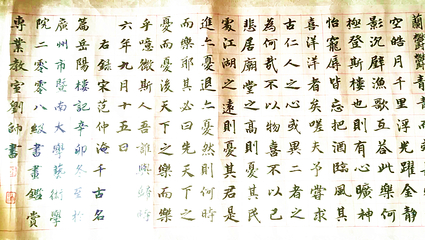 空皓月千里浮光躍金靜
影沉璧漁歌互答此樂何
極登斯樓也則有心曠神
怡寵辱皆忘把酒臨風其
喜洋洋者矣嗟夫予嘗求
古仁人之心或異二者之
為何哉不以物喜不以己
悲居廟堂之高則憂其民
處江湖之遠則憂其君是
進亦憂退亦憂然則何時
而樂耶其必曰先天下之
憂而憂後天下之樂而樂
乎噫微斯人吾誰與歸時
六年九月十五日
右錄宋范仲淹千古名
篇岳陽樓記辛卯冬於
廣州市暨南大學藝術學
院二零零八級書畫鑑賞
專業教室劉師書